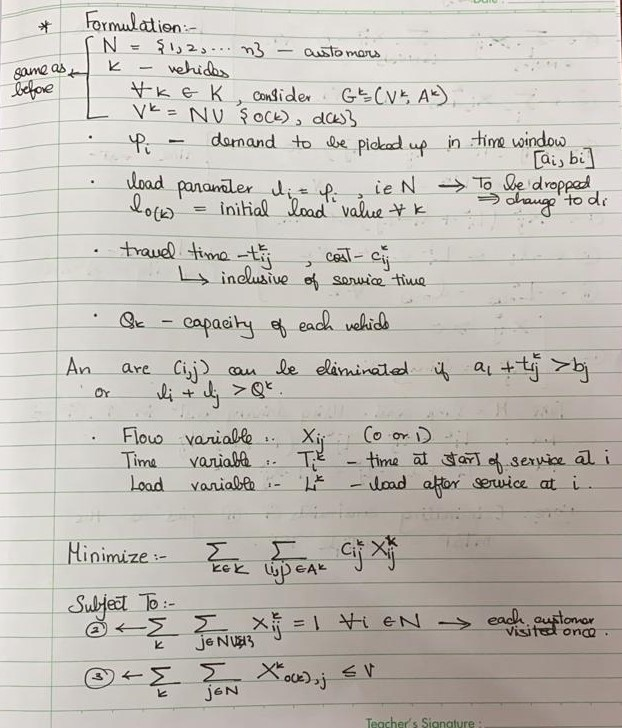 * Formulation:-
same as before
N = {1, 2, ... n} — customers
K — vehicles
∀ k ∈ K, consider G^k = (V^k, A^k)
V^k = N ∪ {o(k), d(k)}
• φi — demand to be picked up in time window [ai, bi]
• load paramter li = φi, i ∈ N → To be dropped
⇒ change to di
l_o(k) = initial load value ∀ k
• travel time - t_ij^k, cost - c_ij^k
↳ inclusive of service time
• Qk — capacity of each vehicle
An arc (i,j) can be eliminated if ai + t_ij^k > bj
or li + lj > Q^k.
• Flow variable :- Xij (0 or 1)
Time variable :- Ti^k - time at start of service at i
Load variable :- Li^k - load after service at i.
Minimize :- Σ_{k∈K} Σ_{(i,j)∈A^k} C_ij^k X_ij^k
Subject To :-
② ← Σ_k Σ_{j∈N∪{d}} X_ij^k = 1 ∀ i ∈ N → each customer visited once.
③ ← Σ_k Σ_{j∈N} X^k_{o(k),j} ≤ V
Teacher's Signature :